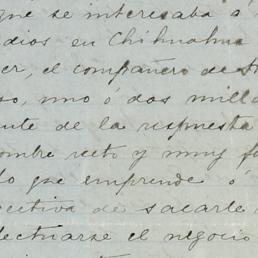 que se interesaba á
dios en Chihuahua
er, el compañero de
so, uno ó dos mill
nte de la respuesta
ombre recto y muy f
lo que emprende ó
ectiva de sacarle
fectuarse el negocio